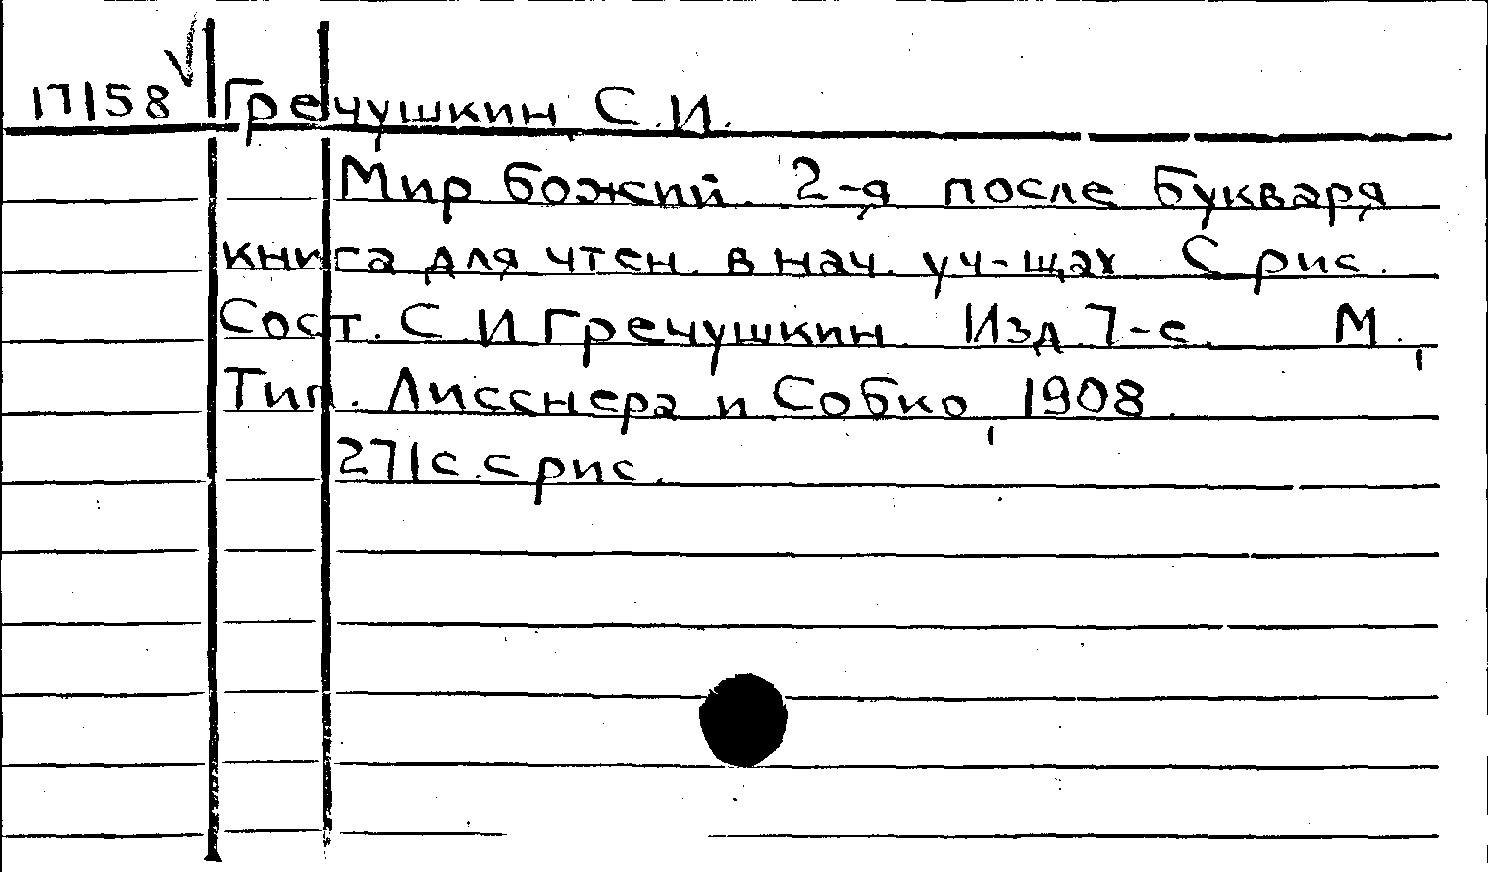 17158 Гречушкин С.И.
Мир божий. 2-я после букваря
книга для чтен. в нач. уч-щах С рис.
Сост. С.И Гречушкин. Изд. 7-е. М.,
Тип. Лисснера и Собко, 1908.
271с. с рис.